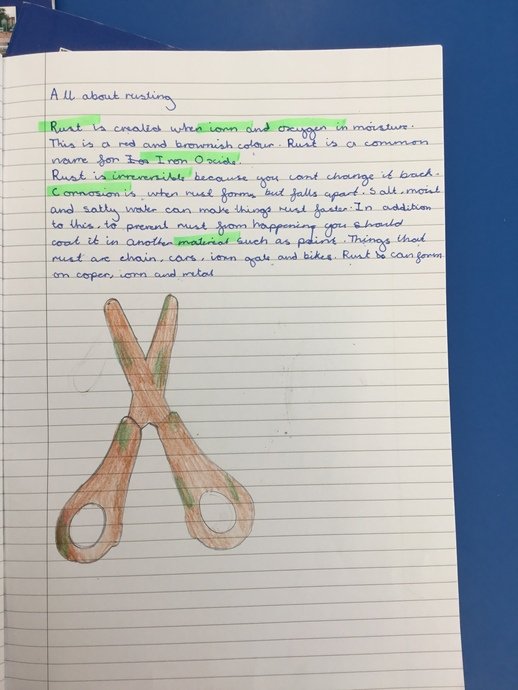 All about rusting
Rust is created when iorn and oxygen in moisture.
This is a red and brownish colour. Rust is a common
name for Iro Iron Oxide.
Rust is irreversible because you cant change it back.
Corrosion is when rust forms but falls apart. Salt, moist
and salty water can make things rust faster. In addition
to this, to prevent rust from happening you should
coat it in another material such as paint. Things that
rust are chain, cars, iorn gate and bikes. Rust can form
on coper, iorn and metal